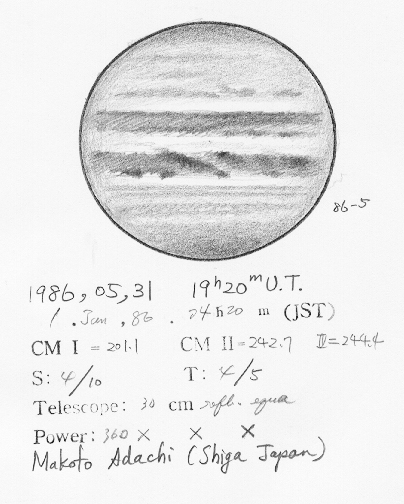 86-5
1986, 05, 31 19h20m U.T.
1 . Jun , 86 . 24h20 m (JST)
CM I = 201.1 CM II = 242.7 III = 244.4
S: 4/10 T: 4/5
Telescope: 30 cm refl. equa
Power: 360 × × ×
Makoto Adachi (Shiga Japan)